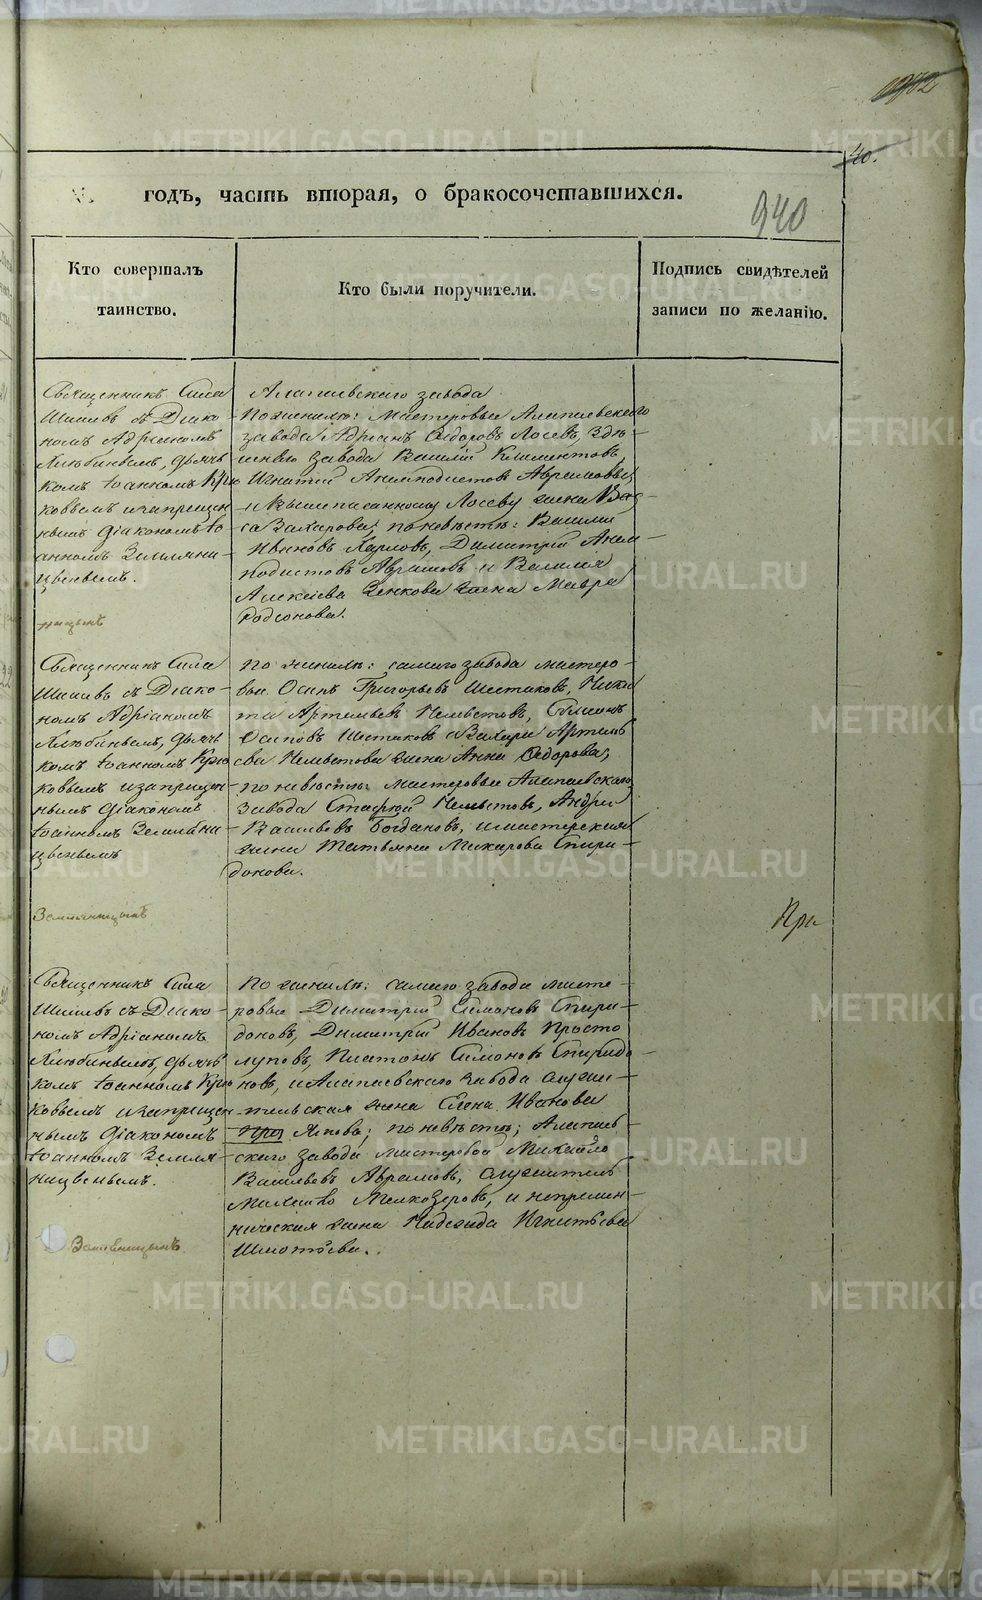 METRIKI.GASO-URAL.RU
40.
годъ, часть вторая, о бракосочетавшихся.
940
Кто совершалъ
таинство.
Кто были поручители.
Подпись свидѣтелей
записи по желанію.
Священникъ Сила
Шишевъ съ Діако-
номъ Адріаномъ
Хлюбинымъ, дьяч-
комъ Іоанномъ Крю
ковымъ и запрещен
нымъ діакономъ Іо-
анномъ Земляни-
цынымъ.
Алапаевскаго завода
По женихѣ: мастеровые Алапаевскаго
завода Адріанъ Ѳедоровъ Лосевъ, здѣ-
шняго завода Василій Климентовъ,
Игнатій Анемподистовъ Аврамовы,
и вышеписанному Лосеву жена Вас-
са Захарова; по невѣстѣ: Василій
Ивановъ Харловъ, Димитрій Анем-
подистовъ Аврамовъ и Василія
Алексѣева Зенкова жена Мавра
Родіонова.
Священникъ Сила
Шишевъ съ Діако-
номъ Адріаномъ
Хлюбинымъ, дьяч
комъ Іоанномъ Крю
ковымъ и запрещен-
нымъ діакономъ
Іоанномъ Земляни-
цынымъ
Земляницынъ
По женихѣ: самаго завода мастеро-
вые Осипъ Григорьевъ Шестаковъ, Ники
та Артемьевъ Нехветовъ, Симеонъ
Осиповъ Шестаковъ и Захара Артемь
ева Нехветова жена Анна Ѳедорова;
по невѣстѣ: мастеровые Алапаевскаго
завода Стафей Нехветовъ, Андрей
Васильевъ Богдановъ, и мастерская
жена Татьяна Макарова Спири-
донова.
При
Священникъ Сила
Шишевъ съ Діако-
номъ Адріаномъ
Хлюбинымъ, дьяч
комъ Іоанномъ Крю
ковымъ и запрещен
нымъ діакономъ
Іоанномъ Земля-
ницынымъ.
Земляницынъ
По женихѣ: самаго завода масте-
ровые Димитрій Симоновъ Спири-
доновъ, Димитрій Ивановъ Просто
луповъ, Платонъ Симоновъ Спиридо-
новъ, и Алапаевскаго завода служи-
тельская жена Елена Иванова
по невѣстѣ; Алапаев-
скаго завода мастеровой Михайло
Васильевъ Аврамовъ, служитель
Мелкозеровъ, и непремен-
ническая жена Надежда Игнатьева